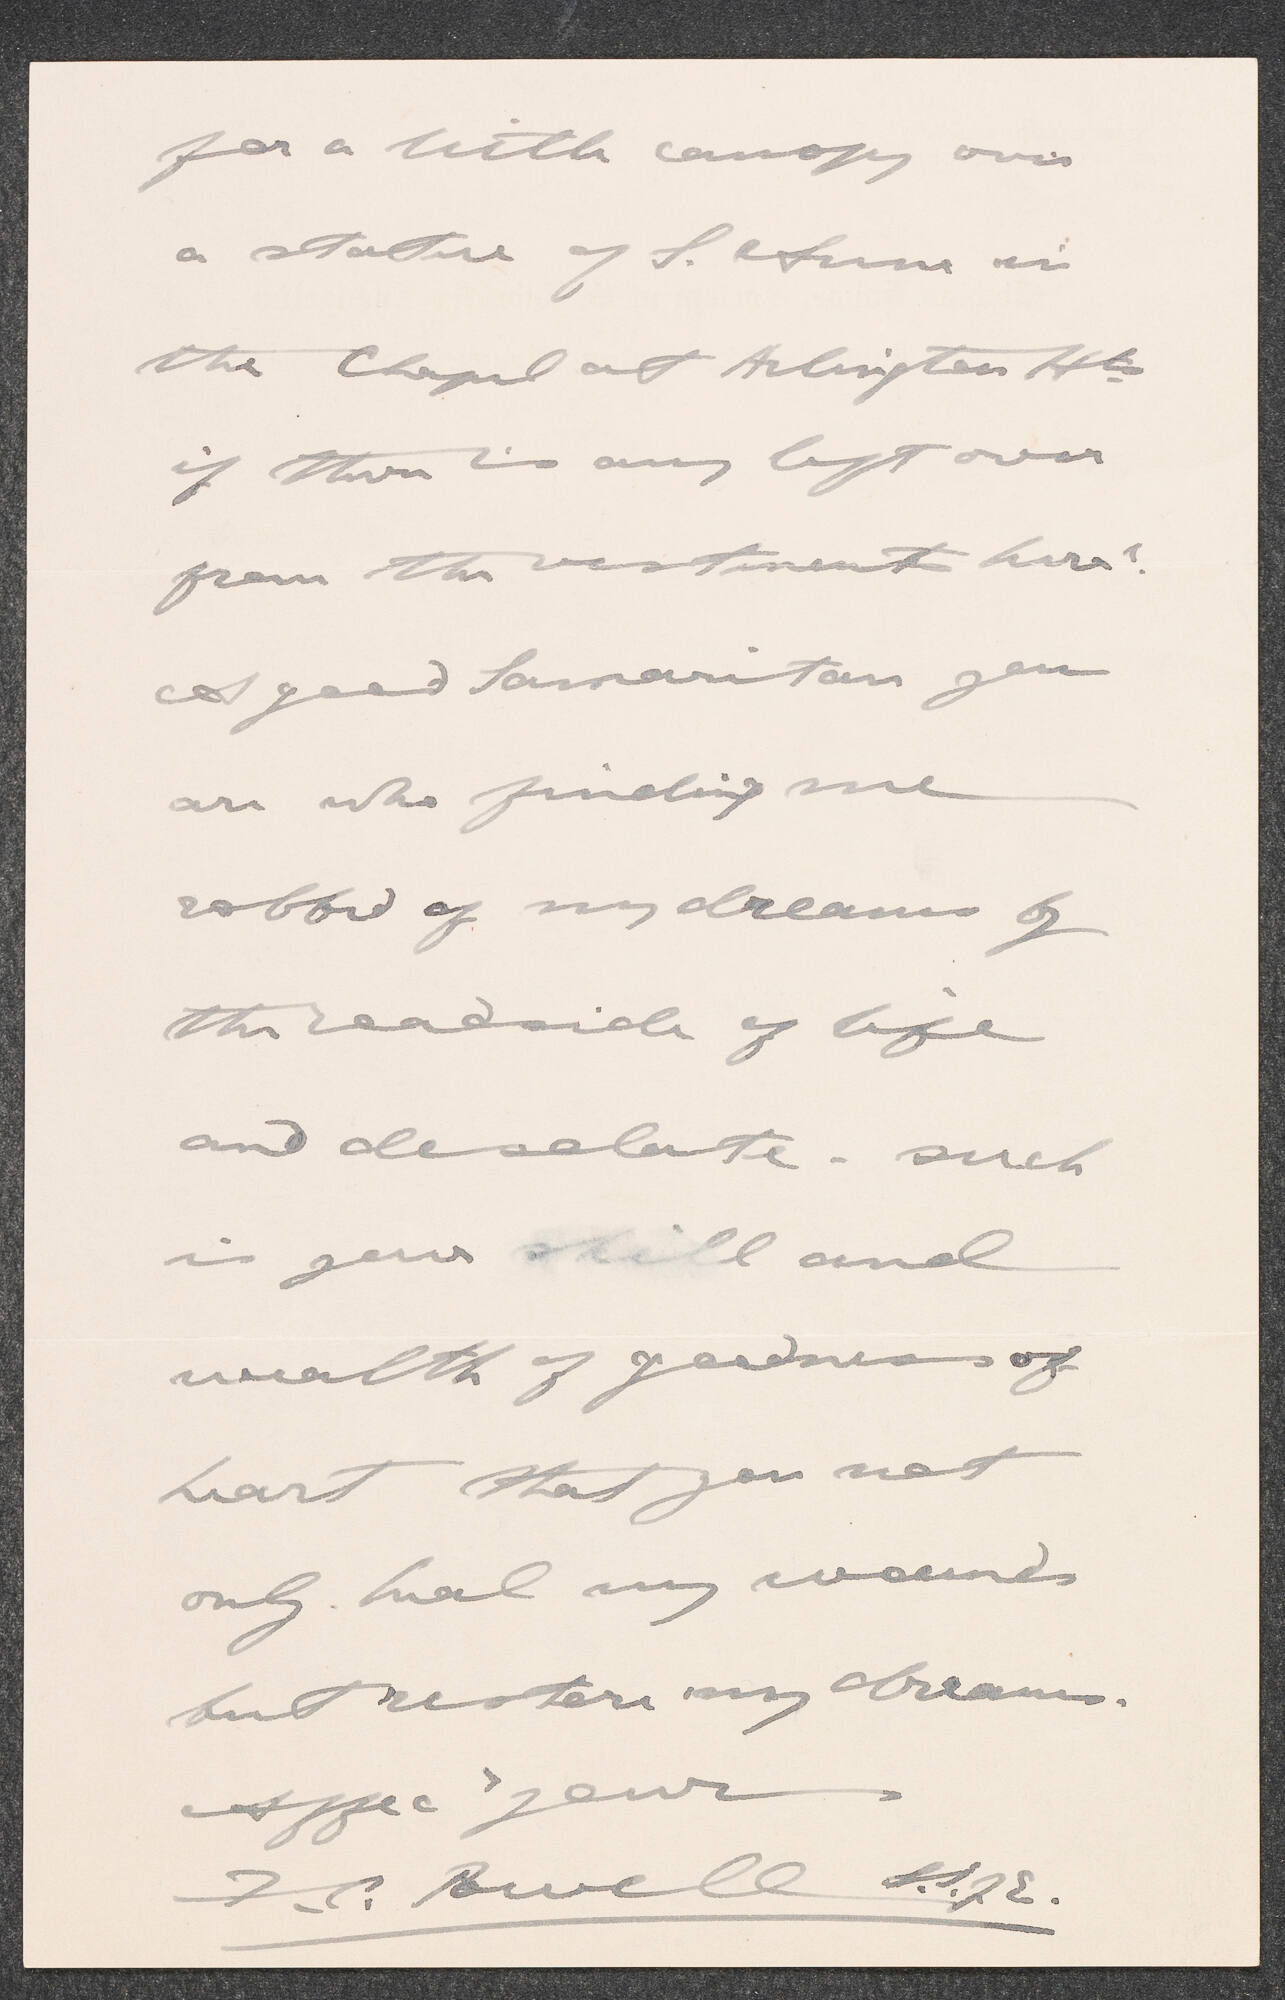 for a little canopy over
a statue of S. Anne in
the Chapel at Arlington Hts
if there is any left over
from the vestments here?
A good Samaritan you
are who finding me
robbed of my dreams by
the roadside of life
and desolate - such
is your skill and
wealth of goodness of
heart that you not
only heal my wounds
but restore my dreams.
Affec'ly yours
F. C. Powell S.S.J.E.